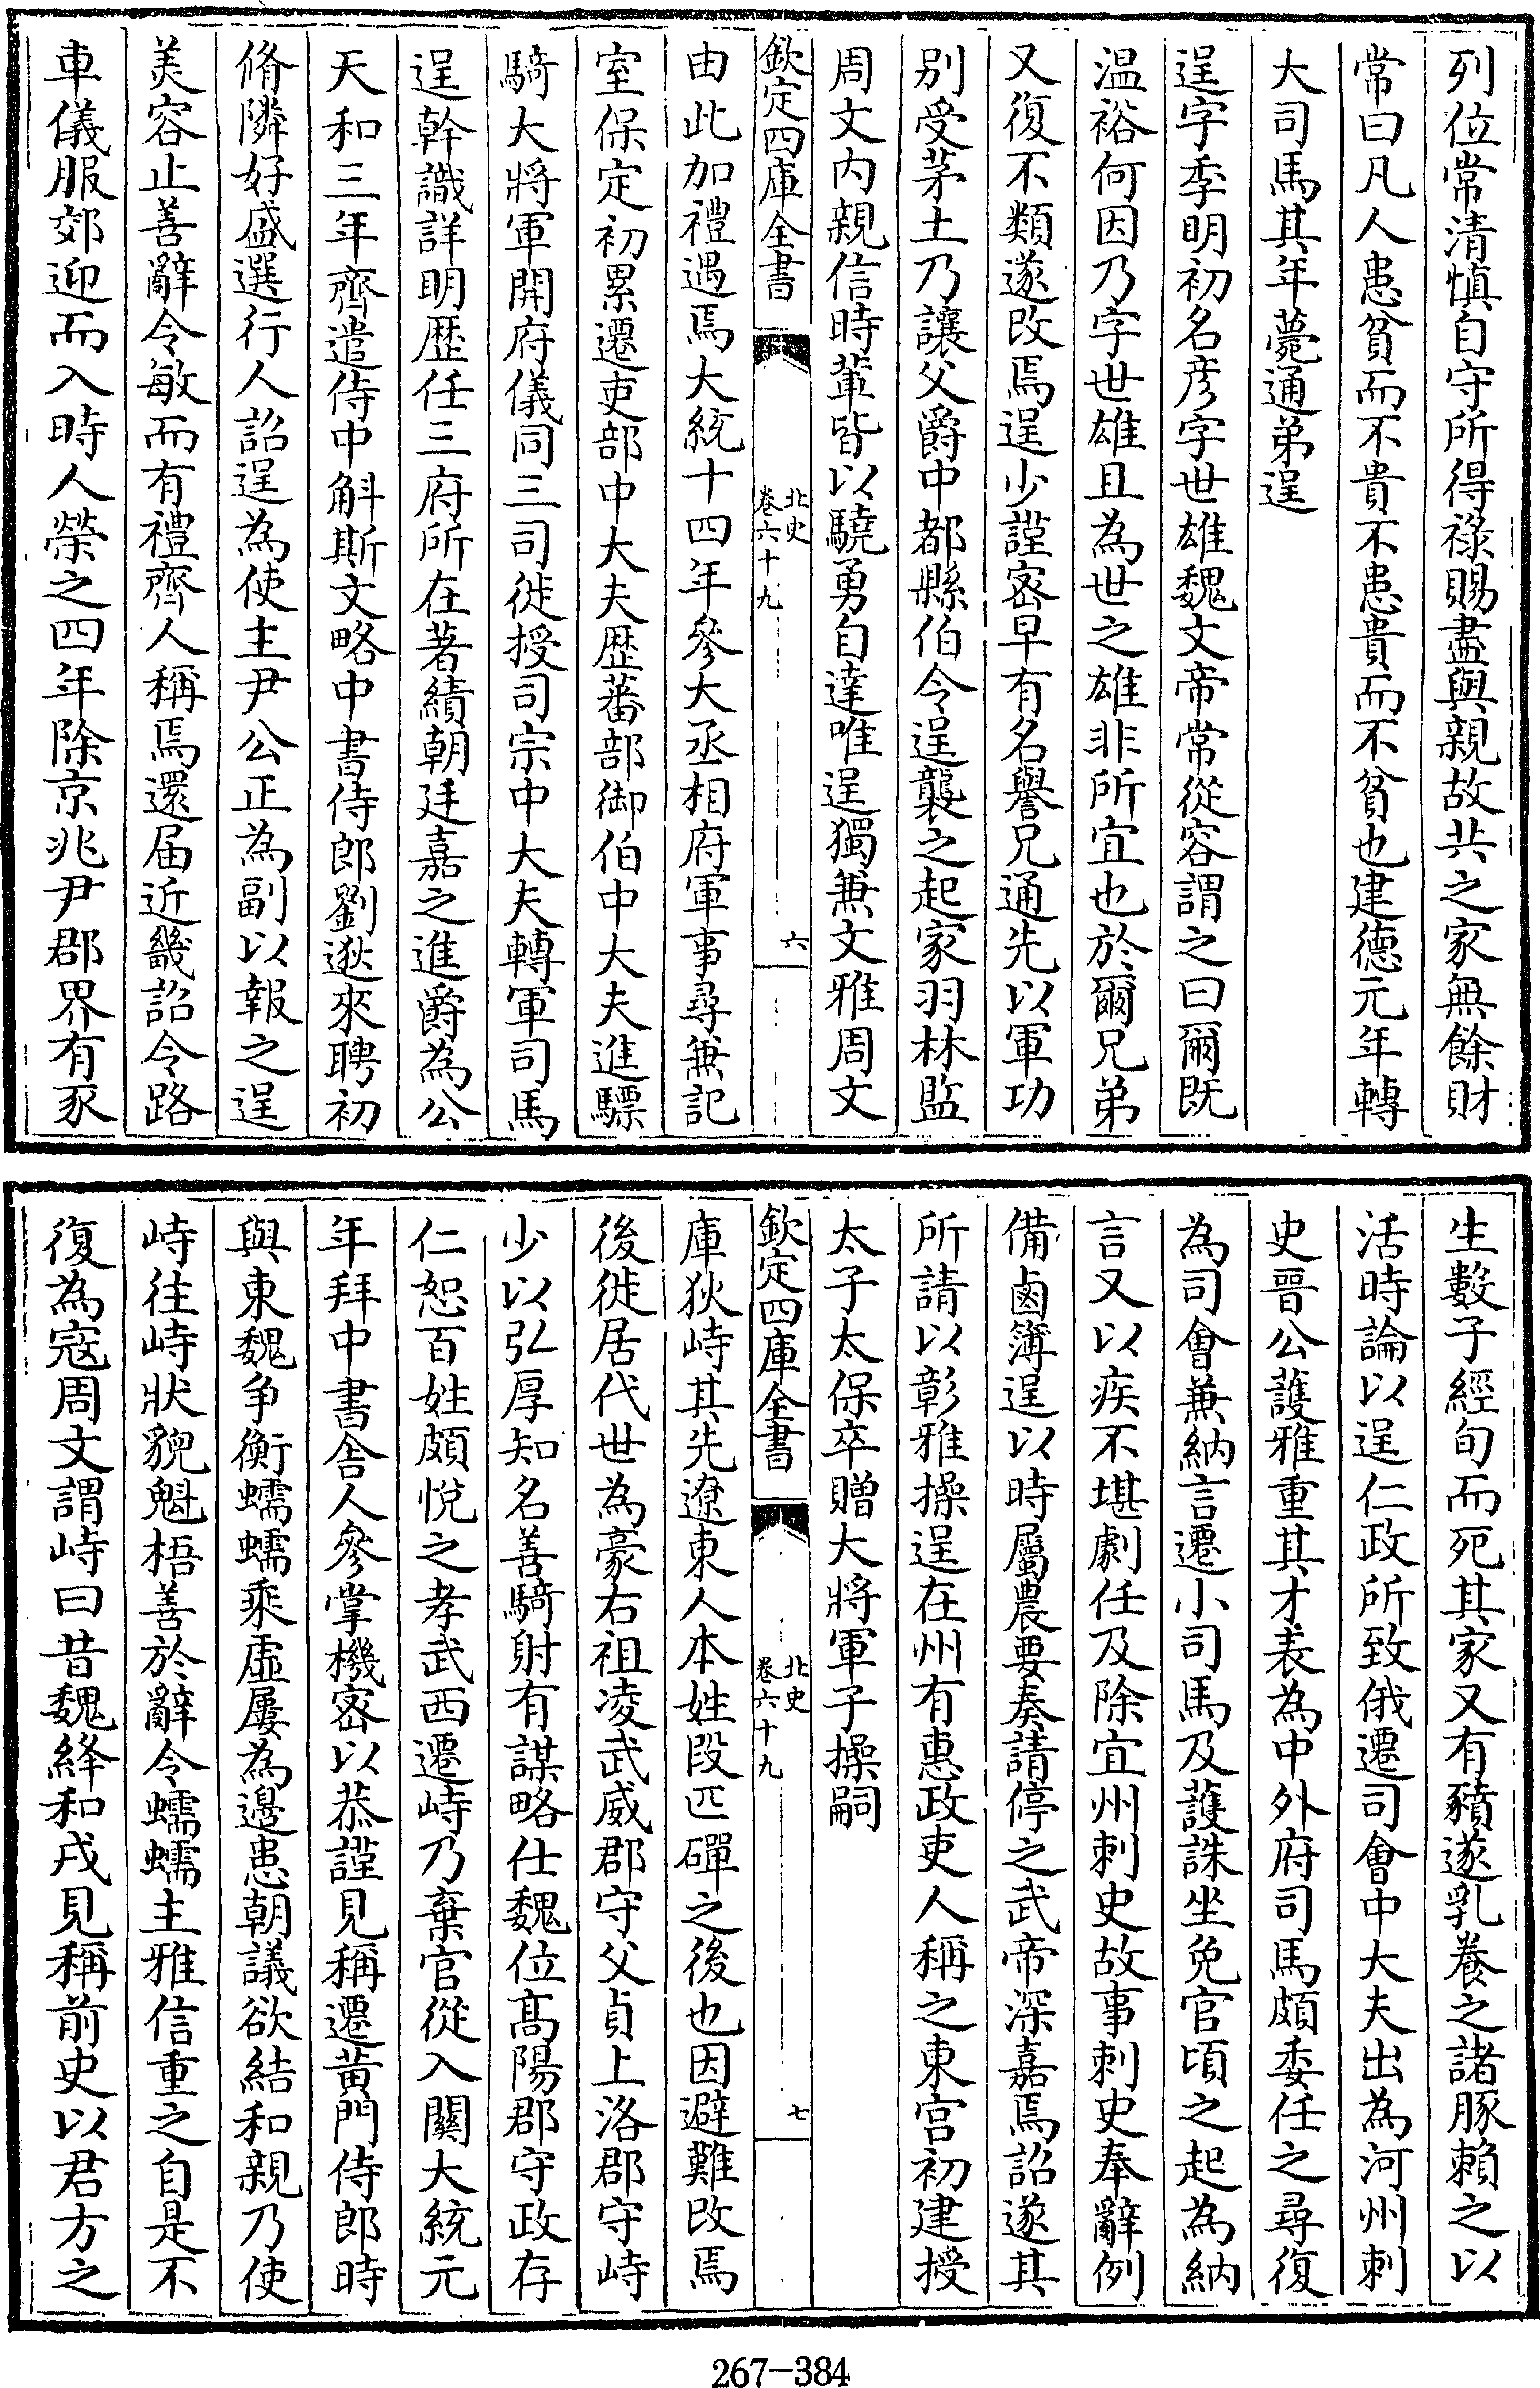 列位常清慎自守所得祿賜盡與親故共之家無餘財
常曰凡人患貧而不貴不患貴而不貧也建德元年轉
大司馬其年薨通弟逞
逞字季明初名彦字世雄魏文帝常從容謂之曰爾既
温裕何因乃字世雄且為世之雄非所宜也於爾兄弟
又復不類遂改焉逞少謹密早有名譽兄通先以軍功
别受茅土乃讓父爵中都縣伯令逞襲之起家羽林監
周文内親信時輩皆以驍勇自達唯逞獨兼文雅周文
欽定四庫全書
北史
卷六十九
六
由此加禮遇焉大統十四年參大丞相府軍事尋兼記
室保定初累遷吏部中大夫歷蕃部御伯中大夫進驃
騎大將軍開府儀同三司徙授司宗中大夫轉軍司馬
逞幹識詳明歷任三府所在著績朝廷嘉之進爵為公
天和三年齊遣侍中斛斯文略中書侍郎劉逖來聘初
脩隣好盛選行人詔逞為使主尹公正為副以報之逞
美容止善辭令敏而有禮齊人稱焉還届近畿詔令路
車儀服郊迎而入時人榮之四年除京兆尹郡界有豕
生數子經旬而死其家又有豶遂乳養之諸豚賴之以
活時論以逞仁政所致俄遷司會中大夫出為河州刺
史晋公䕶雅重其才表為中外府司馬頗委任之尋復
為司會兼納言遷小司馬及䕶誅坐免官頃之起為納
言又以疾不堪劇任及除宜州刺史故事刺史奉辭例
備鹵簿逞以時屬農要奏請停之武帝深嘉焉詔遂其
所請以彰雅操逞在州有惠政吏人稱之東宫初建授
太子太保卒贈大將軍子操嗣
欽定四庫全書
北史
卷六十九
七
庫狄峙其先遼東人本姓段匹磾之後也因避難改焉
後徙居代世為豪右祖凌武威郡守父貞上洛郡守峙
少以弘厚知名善騎射有謀略仕魏位髙陽郡守政存
仁恕百姓頗悦之孝武西遷峙乃棄官從入關大統元
年拜中書舍人參掌機密以恭謹見稱遷黄門侍郎時
與東魏争衡蠕蠕乘虚屢為邊患朝議欲結和親乃使
峙往峙狀貌魁梧善於辭令蠕蠕主雅信重之自是不
復為寇周文謂峙曰昔魏絳和戎見稱前史以君方之
267-384